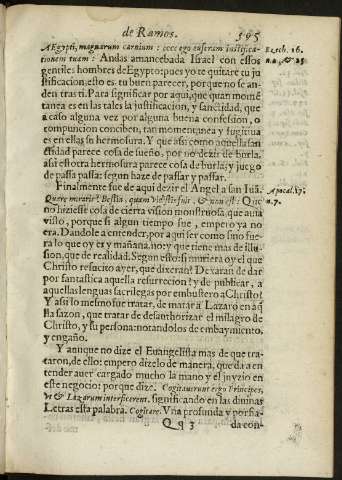 de Ramos. 595
Ægypti, magnarum carnium: ecce ego auferam iustifica-
tionem tuam: Andas amancebada Israel con essos
gentiles hombres de Egypto: pues yo te quitare tu ju
stificacion: esto es. tu buen parecer, porque no se an-
den tras ti. Para significar por aqui, que quan mome
tanea es en las tales la justificacion, y sanctidad, que
a caso alguna vez por alguna buena confession, o
compuncion conciben, tan momentanea y fugitiua
es en ellas su hermosura. Y que assi como aquella san
ctidad parece cosa de sueño, por no dezir de burla,
assi estotra hermosura parece cosa de burla: y juego
de passa passa: segun haze de passar y passar.
Ezech. 16.
n. 2, & 25
Finalmente fue de aqui dezir el Angel a san Iuã.
Quare miraris? Bestia, quam vidisti: fuit, & non est: Que
no hiziesse cosa de cierta vision monstruosa, que auia
visto, porque si algun tiempo fue, empero ya no
era. Dandole a entender, por aqui ser como sino fue
ra lo que oy es y mañana no: y que tiene mas de illu-
sion, que de realidad. Segun esto: si muriera oy el que
Christo resucito ayer, que dixeran? Dexaran de dar
por fantastica aquella resurrection? y de publicar, a
aquellas lenguas sacrilegas por embustero a Christo?
Y assi lo mesmo fue tratar, de matar a Lazaro en aq̃
lla sazon, que tratar de desauthorizar el milagro de
Christo, y su persona: notandolos de embaymiento,
y engaño.
Apocal. 17.
n. 7.
Y aunque no dize el Euangelista mas de que tra-
taron, de ello: empero dizelo de manera, que da a en
tender auer cargado mucho la mano y el juyzio en
este negocio: porque dize. Cogitauerunt ergo Principes,
vt & Lazarum interficerent. significando en las diuinas
Letras esta palabra. Cogitare. Vna profunda y porfia-
Qq 3 da con-